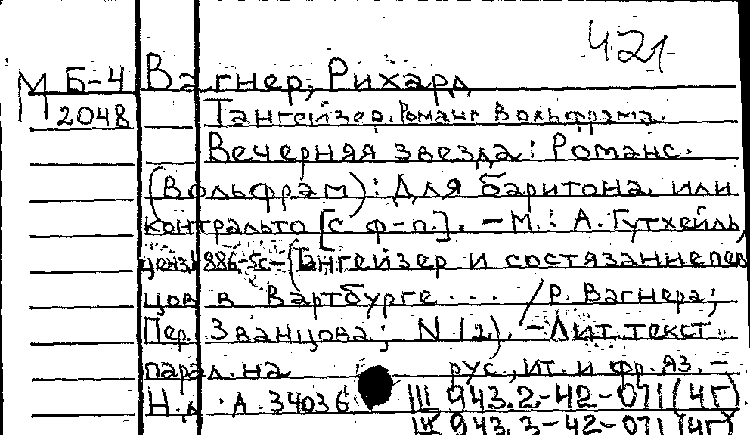 421
М Б-4 Вагнер, Рихард
2048 Тангейзер. Романс Вольфрама.
Вечерняя звезда: Романс.
(Вольфрам): Для баритона или
контральто [с ф-п.]. – М.: А. Гутхейль,
ценз. 1886. – 5с – (Тангейзер и состязание пев
цов в Вартбурге ... / Р. Вагнера;
Пер. Званцова; N 12). – Лит. текст
парал. на рус., ит. и фр. яз. –
Н.д. А. 34036 III 943.2-42-071 (4Г)
IV 943.3-42-071 (4Г)